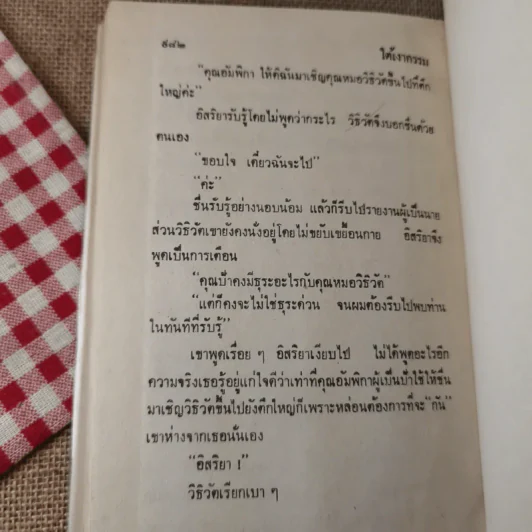 ๑๔๒
ใต้เงากรรม
“คุณอัมพิกา ให้ดิฉันมาเชิญคุณหมอวิธิวัตขึ้นไปที่ตึก
ใหญ่ค่ะ”
อิสริยารับรู้โดยไม่พูดว่ากระไร วิธิวัตจึงบอกชื่นด้วย
ตนเอง
“ขอบใจ เดี๋ยวฉันจะไป”
“ค่ะ”
ชื่นรับรู้อย่างนอบน้อม แล้วก็รีบไปรายงานผู้เป็นนาย
ส่วนวิธิวัตเขายังคงนั่งอยู่โดยไม่ขยับเขยื้อนกาย อิสริยาจึง
พูดเป็นการเตือน
“คุณป้าคงมีธุระอะไรกับคุณหมอวิธิวัต”
“แต่ก็คงจะไม่ใช่ธุระด่วน จนผมต้องรีบไปพบท่าน
ในทันทีที่รับรู้”
เขาพูดเรื่อย ๆ อิสริยาเงียบไป ไม่ได้พูดอะไรอีก
ความจริงเธอรู้อยู่แก่ใจดีว่าเท่าที่คุณอัมพิกาผู้เป็นป้าใช้ให้ชื่น
มาเชิญวิธิวัตขึ้นไปยังตึกใหญ่ก็เพราะหล่อนต้องการที่จะ“กัน”
เขาห่างจากเธอนั่นเอง
“อิสริยา !”
วิธิวัตเรียกเบา ๆ